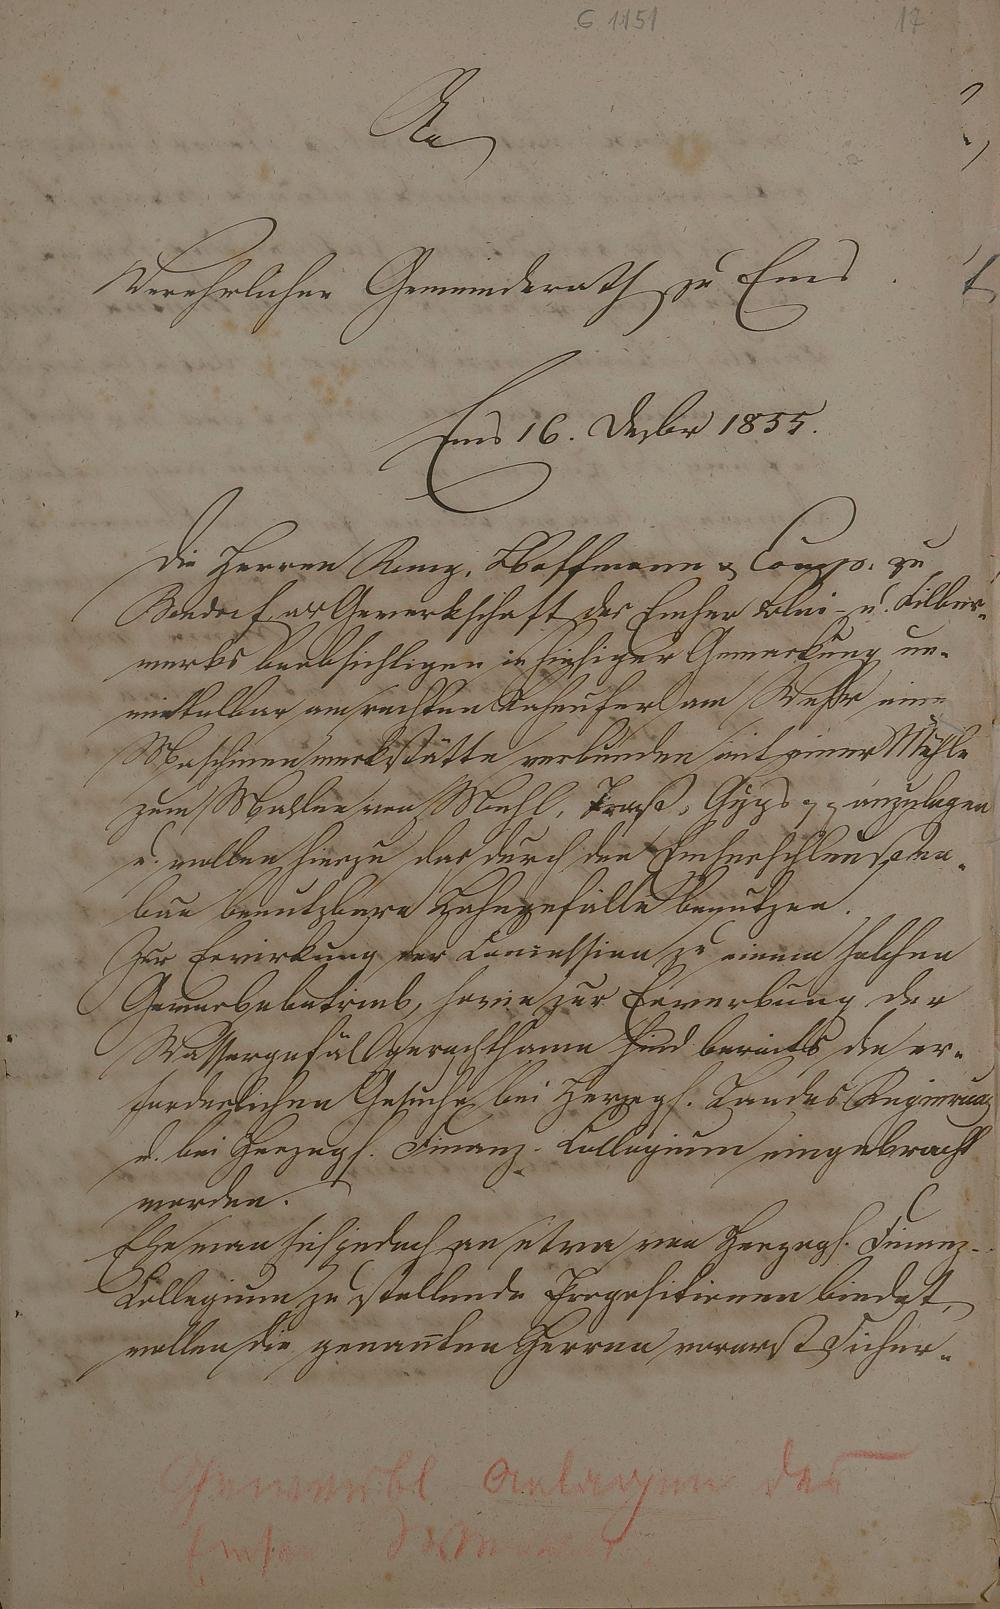 G 1151
17
An
Verehrlichen Gemeinderath zu Ems.
Ems 16. Dezbr 1855.
Die Herren Remy, Hoffmann & Comp. zu
Bendorf als Gewerkschaft des Emser Blei- u. Silber-
werks beabsichtigen in hiesiger Gemarkung un-
mittelbar am rechten Lahnufer am Wehr eine
Maschinenwerkstätte verbunden mit einer Mühle
zum Mahlen von Mehl, Traß, Gyps pp anzulegen
u. wollen hierzu das durch den Emser Schleußen-
bau benutzbare Lahngefälle benutzen.
Zur Erwirkung der Concession zu einem solchen
Gewerbebetrieb, sowie zur Erwerbung der
Wassergefällgerechtsame sind bereits die er-
forderlichen Gesuche bei Herzogl. Landes Regierung
u. bei Herzogl. Finanz-Collegium eingebracht
worden.
Ehe man sich jedoch an etwa von Herzogl. Finanz-
Collegium zu stellende Propositionen bindet,
wollen die genannten Herren vorerst Sicher-
Gewerbl Anlagen des
Emser